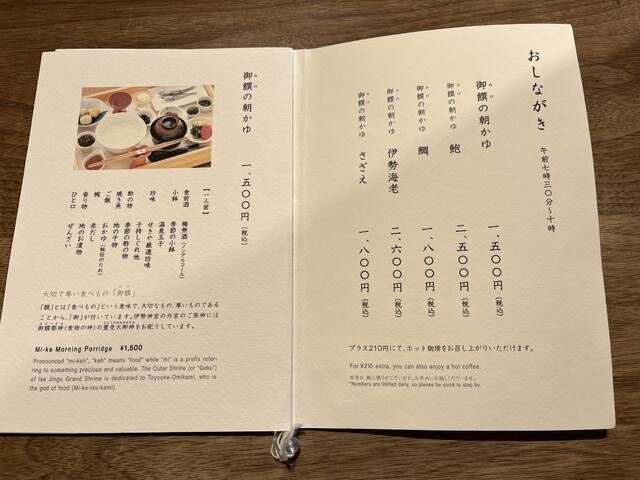 御饌の朝かゆ 一、五〇〇円(税込)
みけ
【一人前】
食前酒 梅無酒(ノンアルコール)
小鉢 季節の小鉢
温泉玉子
珍味 せきや厳選珍味
子持しぐれ他
酢の物 季節の酢の物
焼き魚 地の干物
ご飯 おかゆ(秘伝のたれ)
椀 赤だし
香り物 地のお漬物
ひと口 ぜんざい
大切で尊い食べもの「御饌」
「饌」とは「食べもの」という意味で、大切なもの、尊いものである
ことから、「御」が付いています。伊勢神宮の外宮のご祭神には
御饌都神(食物の神)の豊受大御神をお祀りしています。
Mi-ke Morning Porridge ¥1,500
Pronounced "mi-keh", "keh" means "food" while "mi" is a prefix refer-
ring to something precious and valuable. The Outer Shrine (or "Geku")
of Ise Jingu Grand Shrine is dedicated to Toyouke-Omikami, who is
the god of food (Mi-ke-tsu-kami).
おしながき 午前七時三〇分〜十時
御饌の朝かゆ 一、五〇〇円(税込)
みけ
御饌の朝かゆ 鮑 二、五〇〇円(税込)
みけ
御饌の朝かゆ 鯛 一、八〇〇円(税込)
みけ
御饌の朝かゆ 伊勢海老 二、六〇〇円(税込)
みけ
御饌の朝かゆ さざえ 一、八〇〇円(税込)
みけ
プラス210円にて、ホット珈琲をお召し上がりいただけます。
For ¥210 extra, you can also enjoy a hot coffee.
※各日、数に限りがございます。お早めにお越しくださいませ。
*Numbers are limited daily, so please be quick to stop by.